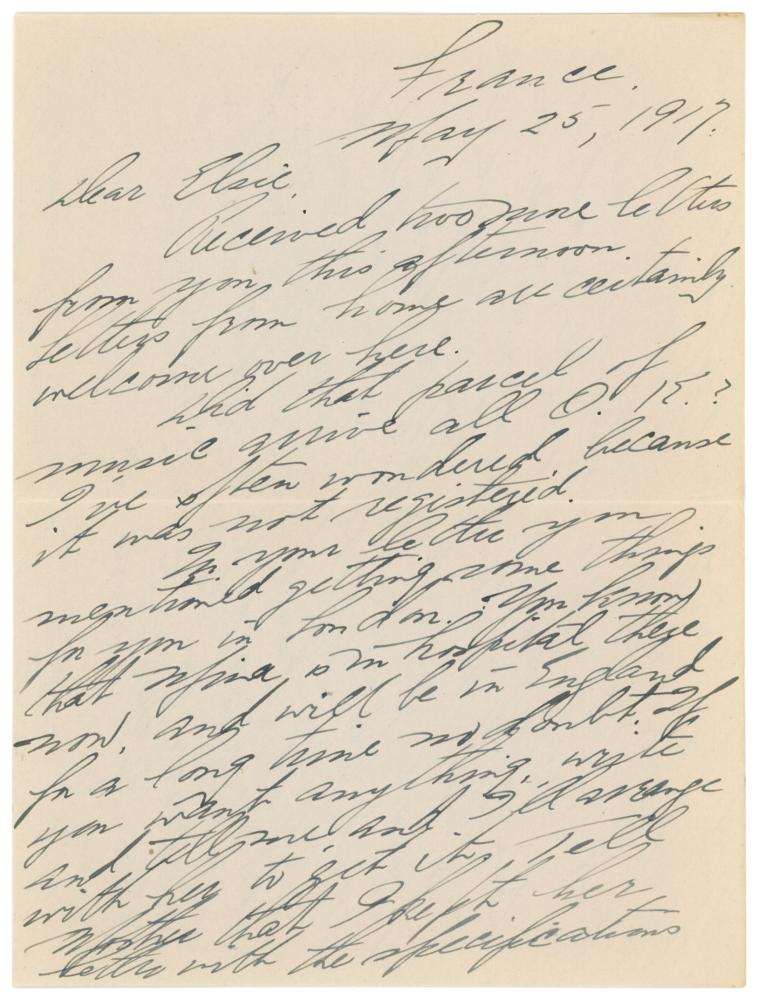 France.
May 25, 1917.
Dear Elsie,
Received two more letters
from you this afternoon.
Letters from home are certainly
welcome over here.
Did that parcel of
music arrive all O. K.?
I've often wondered, because
it was not registered.
In your letter you
mentioned getting some things
for you in London. You know
that Mina is in hospital there
now, and will be in England
for a long time no doubt. If
you want anything, write
and tell me, and I'll arrange
with her to get it. Tell
Mother that I kept her
letter with the specifications